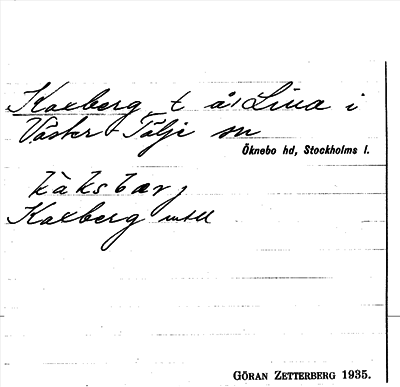 Kaxberg t å/ Lina i
Väster-Tälje sn
Öknebo hd, Stockholms l.
kàksbærj
Kaxberg
GÖRAN ZETTERBERG 1935.